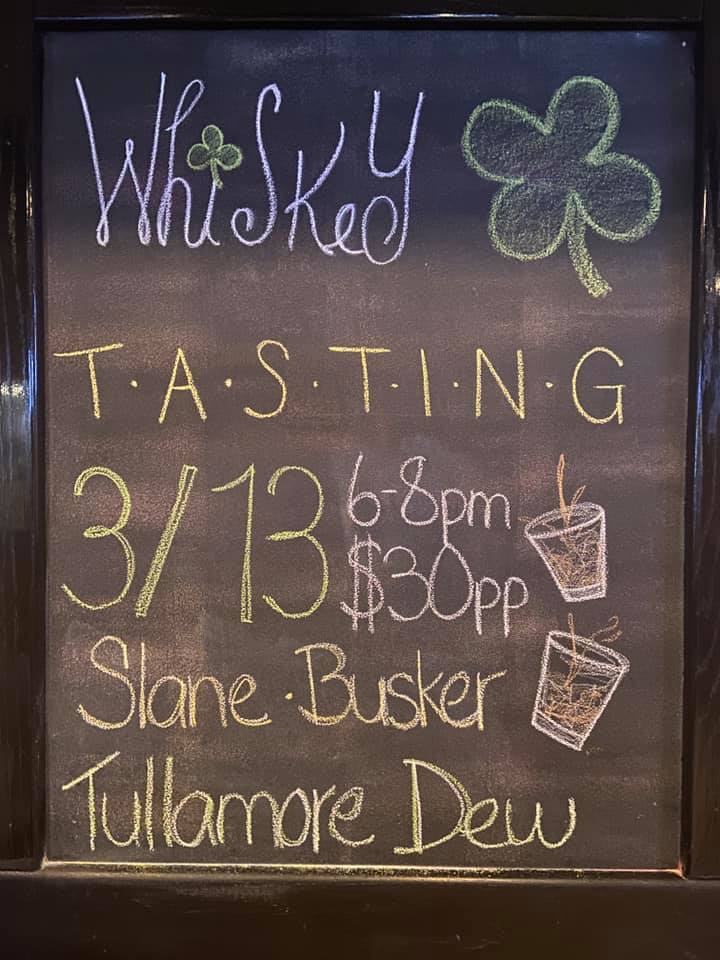 Whiskey
T·A·S·T·I·N·G
3/13 6-8pm
$30pp
Slane · Busker
Tullamore Dew